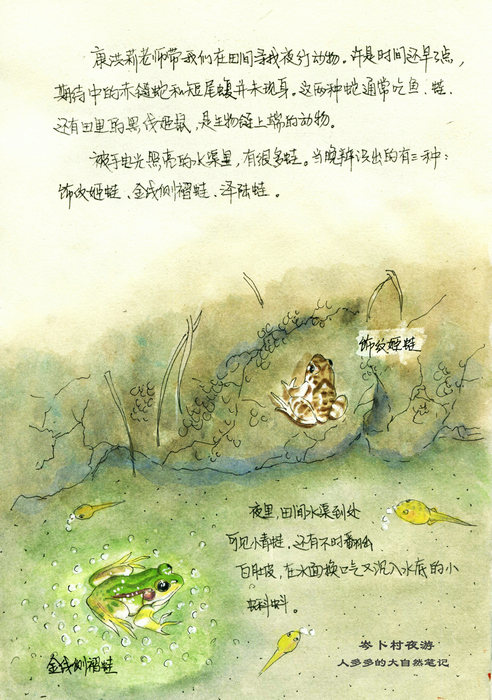 康洪莉老师带我们在田间寻找夜行动物。许是时间还早了点，
期待中的赤链蛇和短尾蝮并未现身。这两种蛇通常吃鱼、蛙、
还有田里的黑线姬鼠，是生物链上端的动物。
被手电光照亮的水渠里，有很多蛙。当晚辨识出的有三种：
饰纹姬蛙、金线侧褶蛙、泽陆蛙。
饰纹姬蛙
夜里，田间水渠到处
可见小青蛙，还有不时翻出
白肚皮，在水面换口气又沉入水底的小
蝌蚪。
金线侧褶蛙
岑卜村夜游
人多多的大自然笔记